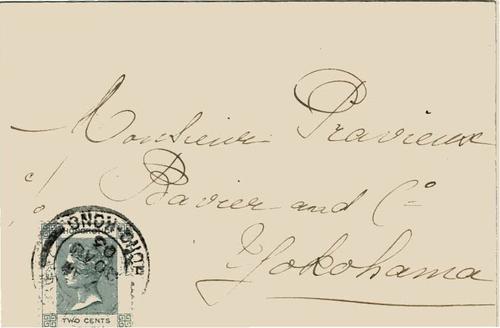 Monsieur Pravieux
c/o Bavier and Co
Yokohama
HONG KONG
TWO CENTS